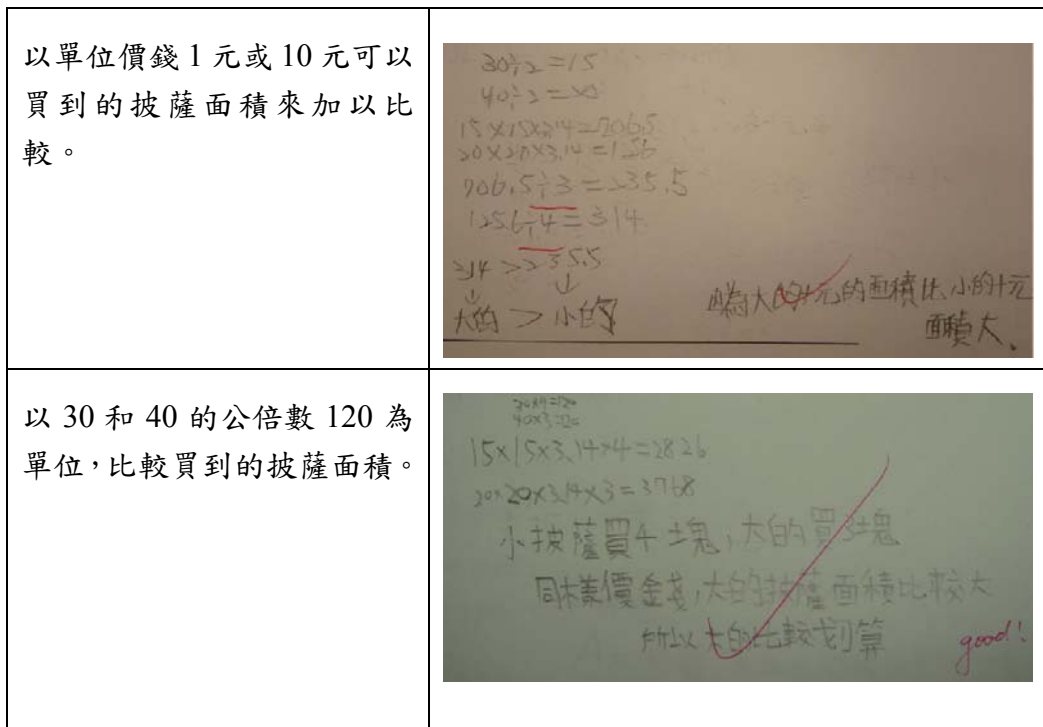 以單位價錢 1 元或 10 元可以
買到的披薩面積來加以比
較。
30÷2=15
40÷2=20
15×15×3.14=706.5
20×20×3.14=1256
706.5÷3=235.5
1256÷4=314
314>235.5
大的 > 小的
因為大的十元的面積比小的十元
面積大、
以 30 和 40 的公倍數 120 為
單位，比較買到的披薩面積。
30×4=120
40×3=120
15×15×3.14×4=2826
20×20×3.14×3=3768
小披薩買4塊，大的買3塊
同樣價金錢，大的披薩面積比較大
所以大的比較划算
good!